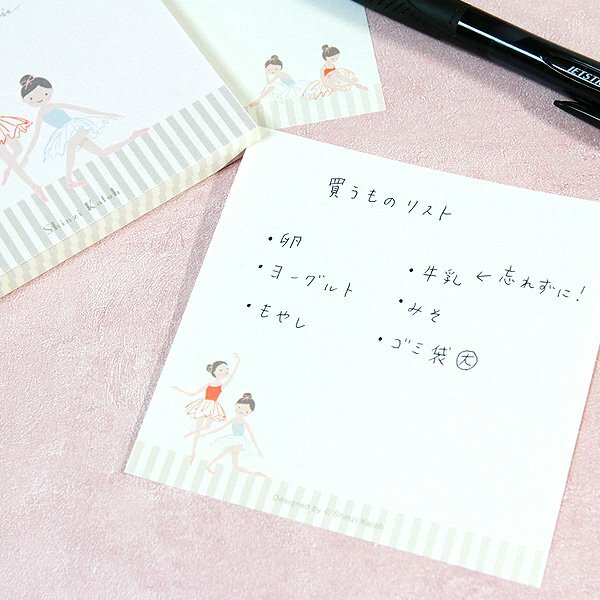 Shinzi Katoh
JETST
買うものリスト
・卵
・ヨーグルト
・もやし
・牛乳 ← 忘れずに!
・みそ
・ゴミ袋 大
Designed by © Shinzi Katoh